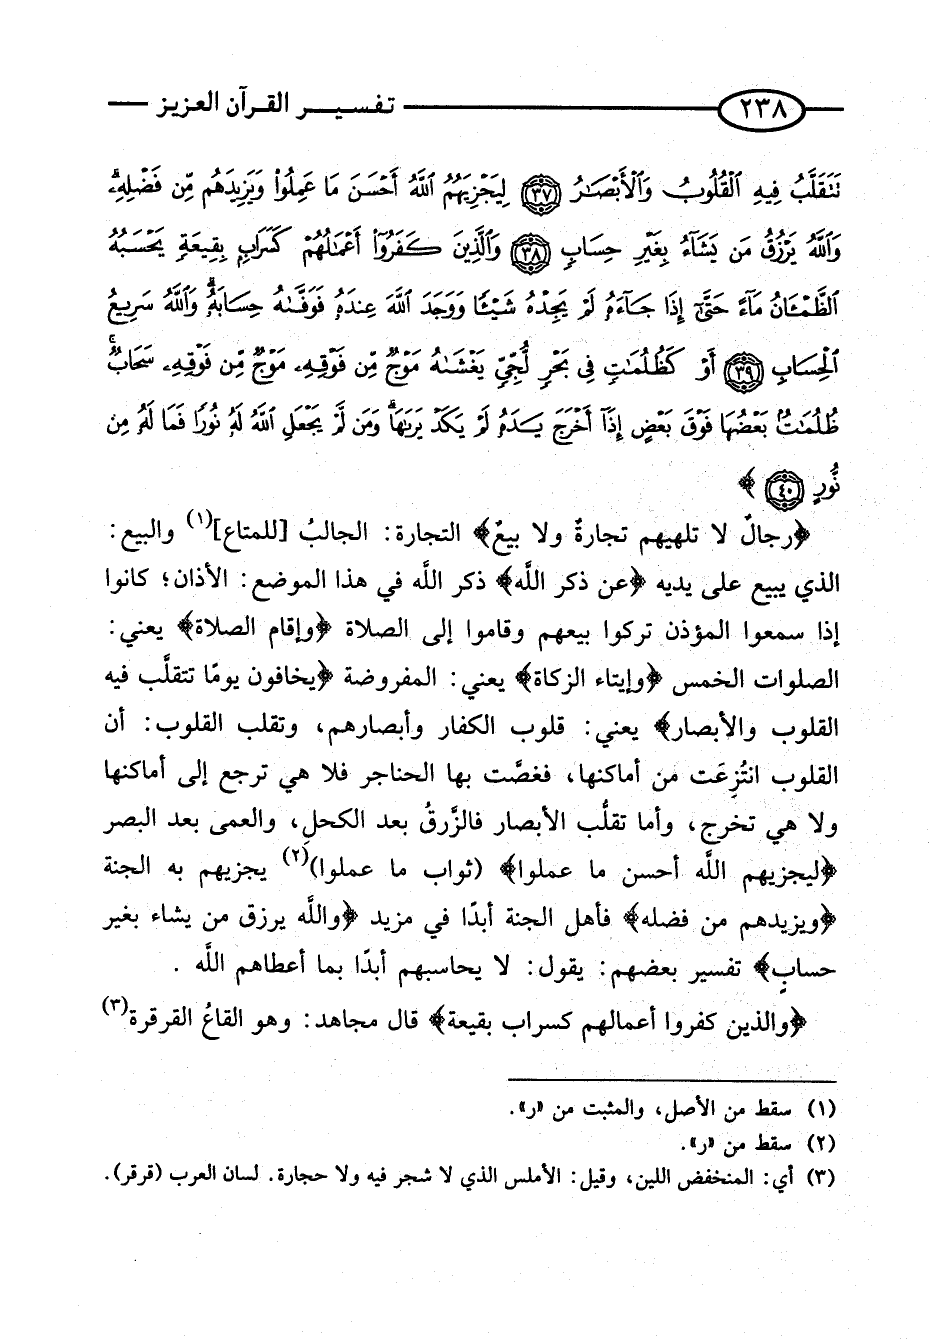 ٢٣٨ تفسير القرآن العزيز
تَتَقَلَّبُ فِيهِ الْقُلُوبُ وَالْأَبْصَـٰرُ ﴿٣٧﴾ لِيَجْزِيَهُمُ اللَّهُ أَحْسَنَ مَا عَمِلُوا وَيَزِيدَهُم مِّن فَضْلِهِۦ ۗ
وَاللَّهُ يَرْزُقُ مَن يَشَآءُ بِغَيْرِ حِسَابٍ ﴿٣٨﴾ وَالَّذِينَ كَفَرُوٓا أَعْمَـٰلُهُمْ كَسَرَابٍ بِقِيعَةٍ يَحْسَبُهُ
الظَّمْـَٔانُ مَآءً حَتَّىٰٓ إِذَا جَآءَهُۥ لَمْ يَجِدْهُ شَيْـًٔا وَوَجَدَ اللَّهَ عِندَهُۥ فَوَفَّىٰهُ حِسَابَهُۥ ۗ وَاللَّهُ سَرِيعُ
الْحِسَابِ ﴿٣٩﴾ أَوْ كَظُلُمَـٰتٍ فِى بَحْرٍ لُّجِّىٍّ يَغْشَىٰهُ مَوْجٌ مِّن فَوْقِهِۦ مَوْجٌ مِّن فَوْقِهِۦ سَحَابٌ ۚ
ظُلُمَـٰتٌۢ بَعْضُهَا فَوْقَ بَعْضٍ إِذَآ أَخْرَجَ يَدَهُۥ لَمْ يَكَدْ يَرَىٰهَا ۗ وَمَن لَّمْ يَجْعَلِ اللَّهُ لَهُۥ نُورًا فَمَا لَهُۥ مِن
نُّورٍ ﴿٤٠﴾ ﴾
﴿رجالٌ لا تلهيهم تجارةٌ ولا بيعٌ﴾ التجارة: الجالبُ [للمتاع](١) والبيع:
الذي يبيع على يديه ﴿عن ذكر اللَّه﴾ ذكر اللَّه في هذا الموضع: الأذان؛ كانوا
إذا سمعوا المؤذن تركوا بيعهم وقاموا إلى الصلاة ﴿وإقام الصلاة﴾ يعني:
الصلوات الخمس ﴿وإيتاء الزكاة﴾ يعني: المفروضة ﴿يخافون يومًا تتقلَّب فيه
القلوب والأبصار﴾ يعني: قلوب الكفار وأبصارهم، وتقلب القلوب: أن
القلوب انتُزِعَت من أماكنها، فغصَّت بها الحناجر فلا هي ترجع إلى أماكنها
ولا هي تخرج، وأما تقلُّب الأبصار فالزَّرقُ بعد الكحلِ، والعمى بعد البصر
﴿ليجزيهم اللَّه أحسن ما عملوا﴾ (ثواب ما عملوا)(٢) يجزيهم به الجنة
﴿ويزيدهم من فضله﴾ فأهل الجنة أبدًا في مزيد ﴿واللَّه يرزق من يشاء بغير
حسابٍ﴾ تفسير بعضهم: يقول: لا يحاسبهم أبدًا بما أعطاهم اللَّه .
﴿والذين كفروا أعمالهم كسراب بقيعة﴾ قال مجاهد: وهو القاعُ القرقرة(٣)
(١) سقط من الأصل، والمثبت من «ر».
(٢) سقط من «ر».
(٣) أي: المنخفض اللين، وقيل: الأملس الذي لا شجر فيه ولا حجارة. لسان العرب (قرقر).